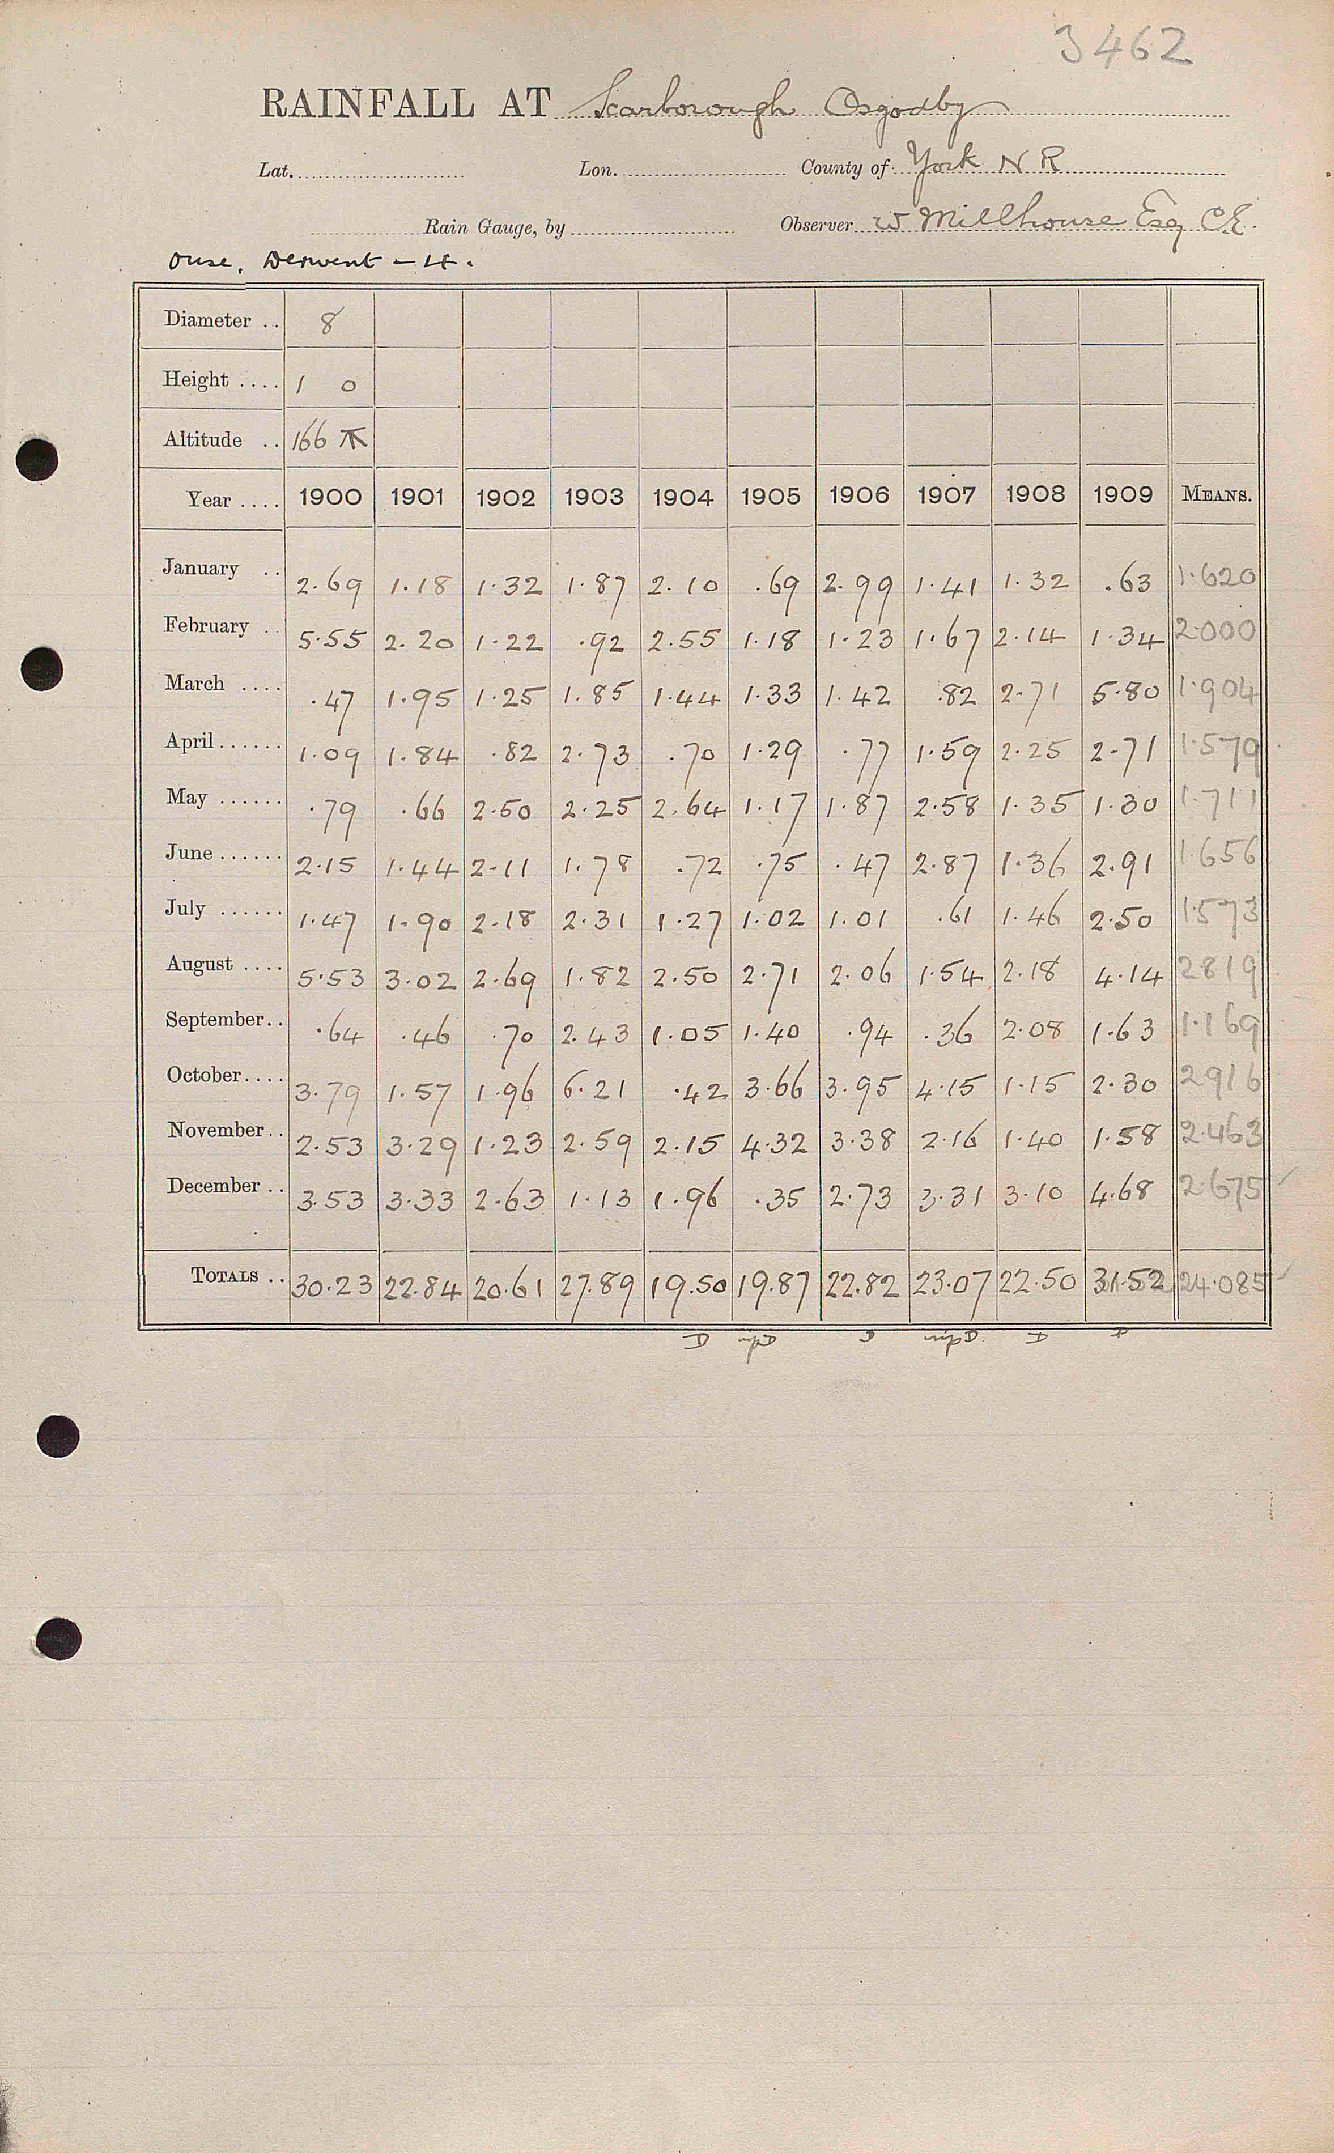 3462
RAINFALL AT Scarborough Osgodby
Lat. Lon. County of York N R
Rain Gauge, by Observer W Millhouse Esq C.E.
Ouse, Derwent - 4.
Diameter .. 8
Height .... 1 0
Altitude .. 166
Year .... 1900 1901 1902 1903 1904 1905 1906 1907 1908 1909 MEANS.
January .. 2.69 1.18 1.32 1.87 2.10 .69 2.99 1.41 1.32 .63 1.620
February .. 5.55 2.20 1.22 .92 2.55 1.18 1.23 1.67 2.14 1.34 2.000
March .... .47 1.95 1.25 1.85 1.44 1.33 1.42 .82 2.71 5.80 1.904
April...... 1.09 1.84 .82 2.73 .70 1.29 .77 1.59 2.25 2.71 1.579
May ...... .79 .66 2.50 2.25 2.64 1.17 1.87 2.58 1.35 1.30 1.711
June ...... 2.15 1.44 2.11 1.78 .72 .75 .47 2.87 1.36 2.91 1.656
July ...... 1.47 1.90 2.18 2.31 1.27 1.02 1.01 .61 1.46 2.50 1.573
August .... 5.53 3.02 2.69 1.82 2.50 2.71 2.06 1.54 2.18 4.14 2819
September.. .64 .46 .70 2.43 1.05 1.40 .94 .36 2.08 1.63 1.169
October.... 3.79 1.57 1.96 6.21 .42 3.66 3.95 4.15 1.15 2.30 2916
November.. 2.53 3.29 1.23 2.59 2.15 4.32 3.38 2.16 1.40 1.58 2.463
December .. 3.53 3.33 2.63 1.13 1.96 .35 2.73 3.31 3.10 4.68 2.675
TOTALS .. 30.23 22.84 20.61 27.89 19.50 19.87 22.82 23.07 22.50 31.52 24.085